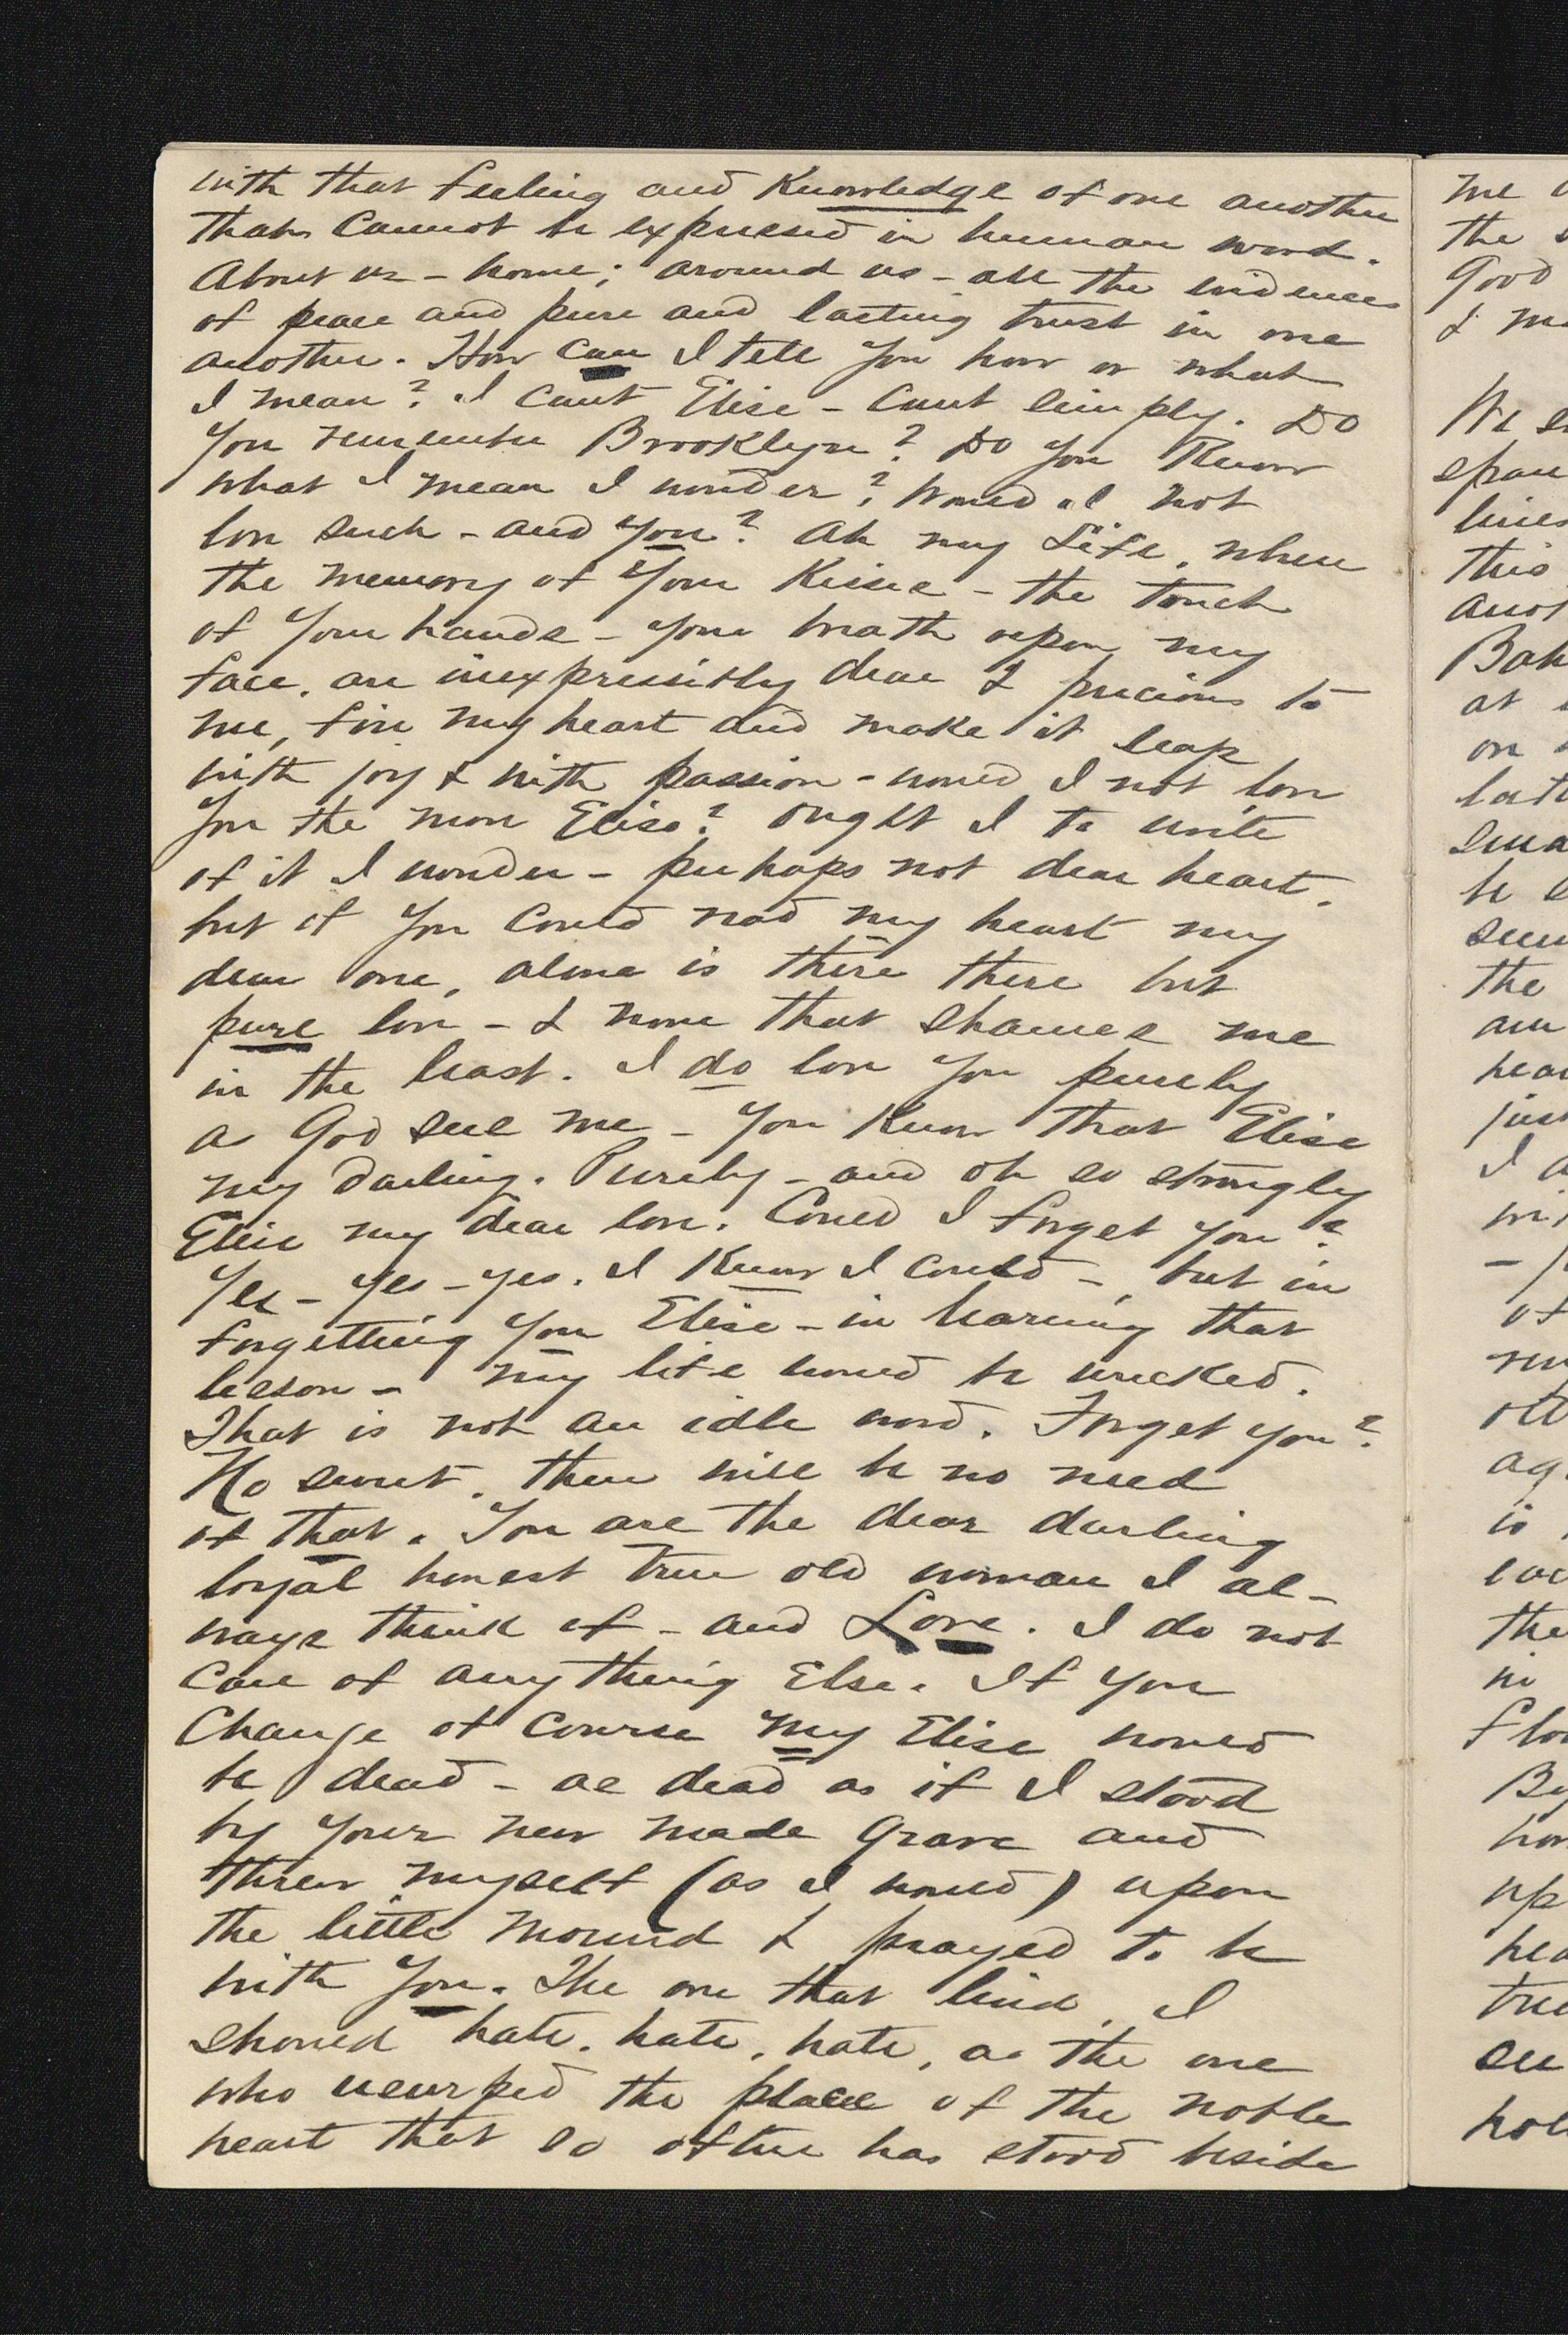 with that feeling and Knowledge of one another
that cannot be expressed in human word.
About us - home; around us - all the evidences
of peace and pure and lasting trust in one
another. How can I tell you how or what
I mean? I cant Elise - cant simply. Do
you remember Brooklyn? Do you Know
what I mean I wonder? Would I not
love such - and you? Ah my Life, when
the memory of your Kisses - the touch
of your hands - your breath upon my
face, are inexpressibly dear & precious to
me, fire my heart and make it leap
with joy & with passion - would I not love
you the more Elise? Ought I to write
of it I wonder - perhaps not dear heart,
but if you could read my heart my
dear one, alone is there there but
pure love - & none that shames me
in the least. I do love you purely
as God sees me - you Know that Elise
my darling. Purely - and oh so strongly
Elise my dear love. Could I forget you?
Yes - yes - yes. I Know I could - but in
forgetting you Elise - in learning that
lesson - my life would be wrecked.
That is not an idle word. Forget you?
No sweet. there will be no need
of that. You are the dear darling
loyal honest true old woman I al-
ways think of - and Love. I do not
care of anything Else. If you
Change of course my Elise would
be dead - as dead as if I stood
by your new made grave and
threw myself (as I would) upon
the little mound & prayed to be
with you. The one that lived, I
should hate, hate, hate, as the one
who usurped the place of the noble
heart that so often has stood beside
me
the
Good
&
We
this
at
on
the
I
of
is
the
up